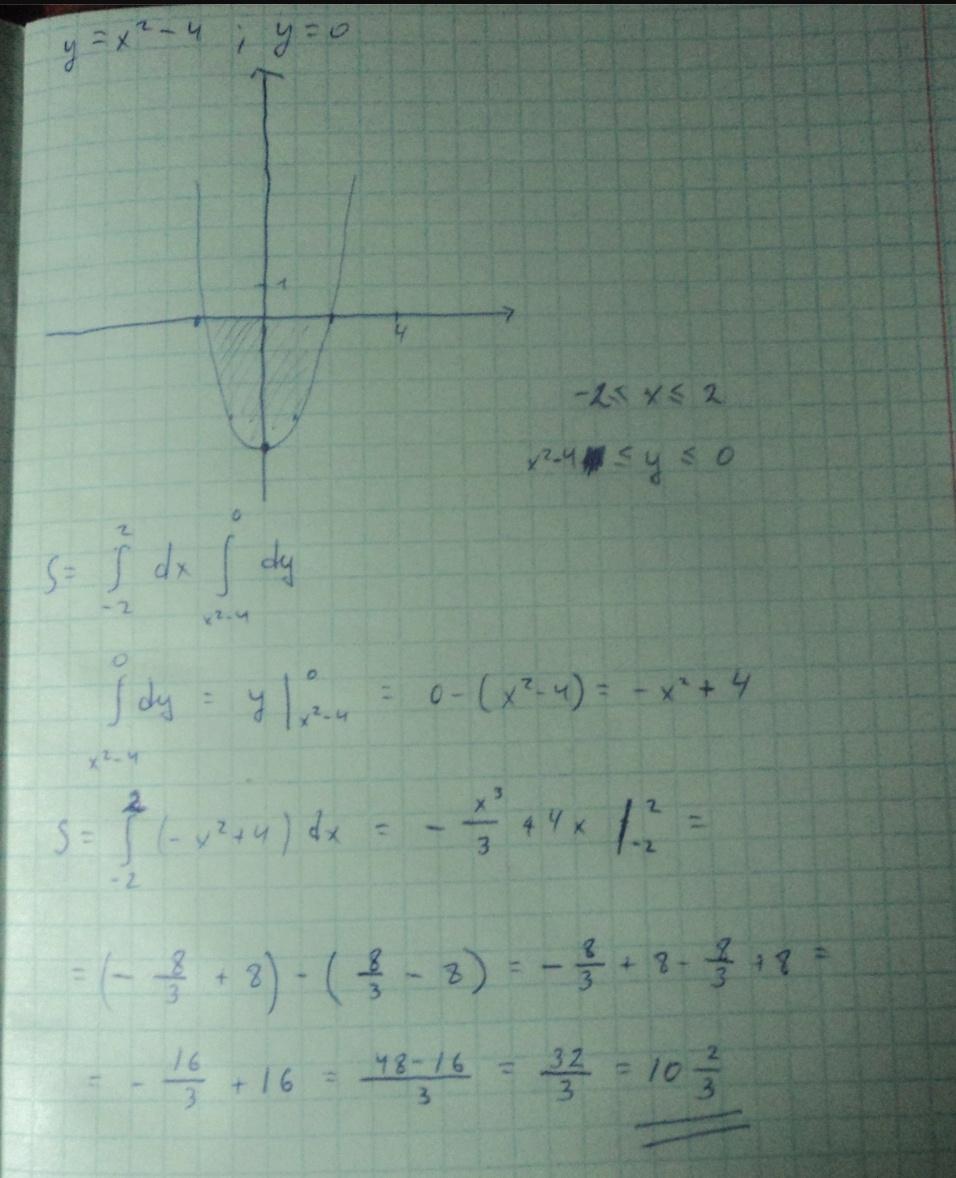 y = x² - 4 ; y = 0
1
4
-2 ≤ x ≤ 2
x² - 4 ≤ y ≤ 0
S = ∫_{-2}^{2} dx ∫_{x²-4}^{0} dy
∫_{x²-4}^{0} dy = y |_{x²-4}^{0} = 0 - (x² - 4) = -x² + 4
S = ∫_{-2}^{2} (-x² + 4) dx = - x³/3 + 4x |_{-2}^{2} =
= (- 8/3 + 8) - (8/3 - 8) = - 8/3 + 8 - 8/3 + 8 =
= - 16/3 + 16 = (48 - 16)/3 = 32/3 = 10 2/3